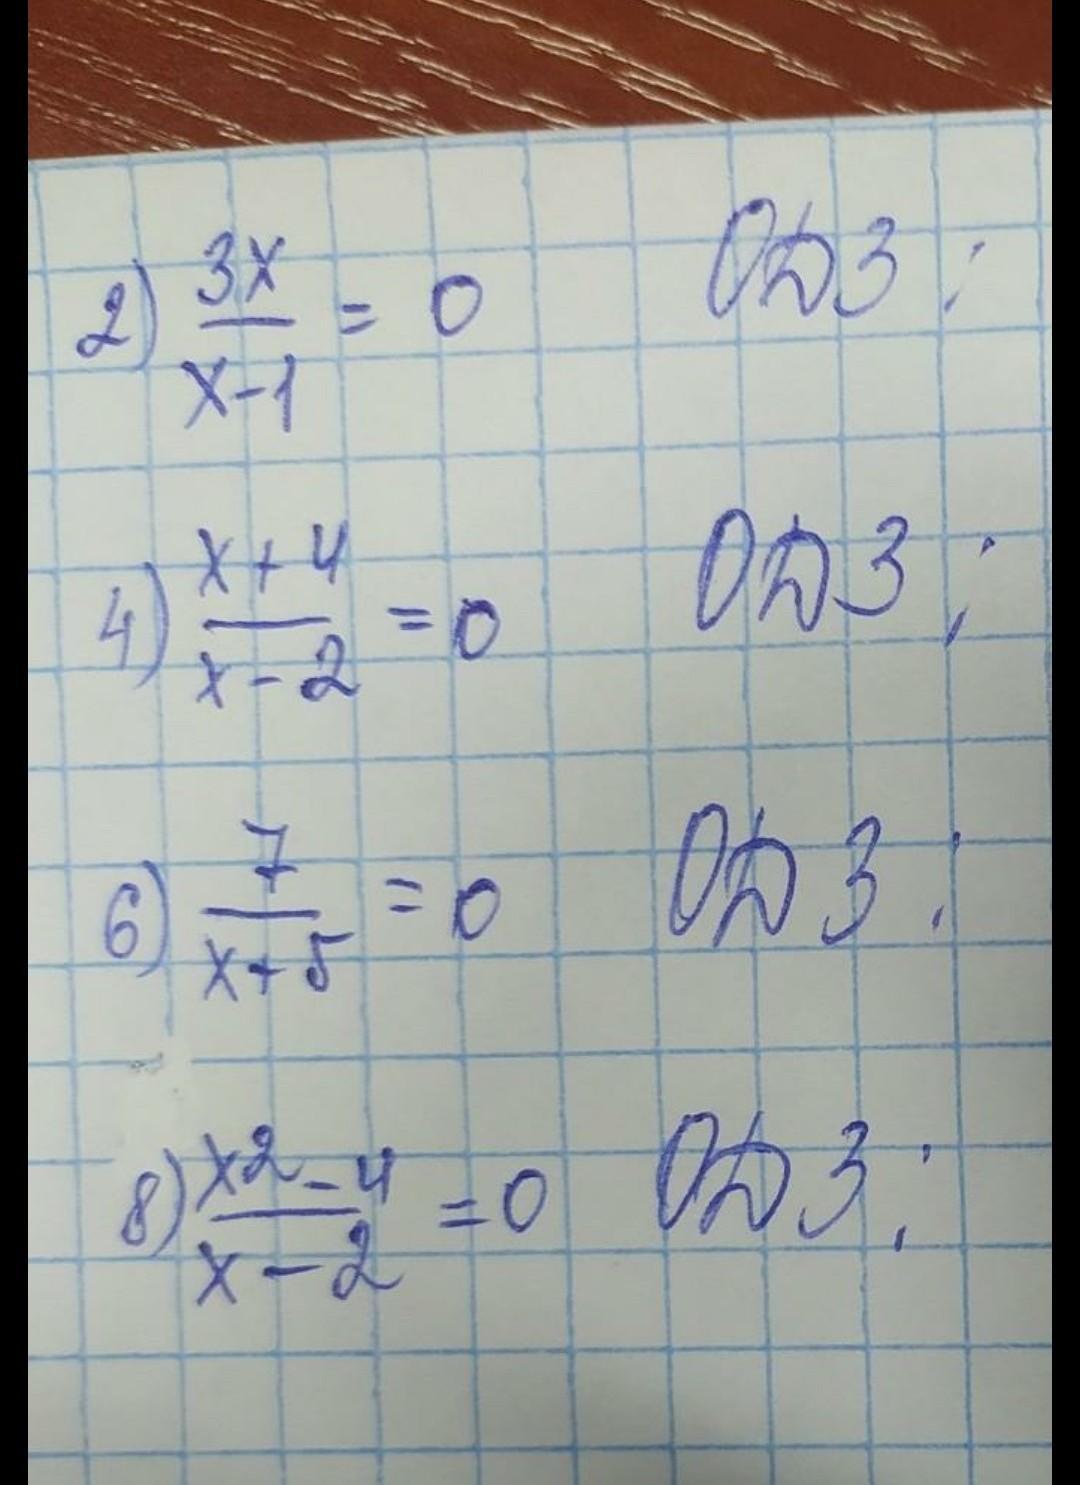 2) 3x/(x-1) = 0 ОДЗ:
4) (x+4)/(x-2) = 0 ОДЗ:
6) 7/(x+5) = 0 ОДЗ:
8) (x²-4)/(x-2) = 0 ОДЗ: